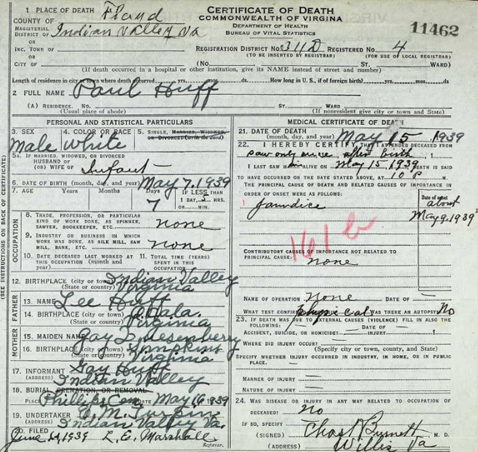 CERTIFICATE OF DEATH
COMMONWEALTH OF VIRGINIA
DEPARTMENT OF HEALTH
BUREAU OF VITAL STATISTICS
11462
1 PLACE OF DEATH
COUNTY OF Floyd
MAGISTERIAL DISTRICT OF Indian Valley Va
INC. TOWN OF
CITY OF
REGISTRATION DISTRICT NO. 311D REGISTERED NO. 4
(TO BE INSERTED BY REGISTRAR) (FOR USE OF LOCAL REGISTRAR)
NO. ST. WARD)
(If death occurred in a hospital or other institution, give its NAME instead of street and number)
Length of residence in city or town where death occurred yrs. mos. ds. How long in U.S., if of foreign birth? yrs. mos. ds.
2 FULL NAME Paul Huff
(A) RESIDENCE. No. ST. WARD
(Usual place of abode) (If nonresident give city or town and State)
PERSONAL AND STATISTICAL PARTICULARS
3. SEX 4. 5. SINGLE, MARRIED, WIDOWED,
Male White
5a. IF MARRIED, WIDOWED, OR DIVORCED
HUSBAND OF
(OR) WIFE OF Infant
6. DATE OF BIRTH (month, day, and year) May 7, 1939
7. AGE Years Months Days IF LESS than 1 day, hrs.
7
OCCUPATION
8. TRADE, PROFESSION, OR PARTICULAR KIND OF WORK DONE, AS SPINNER, SAWYER, BOOKKEEPER, ETC. none
9. INDUSTRY OR BUSINESS IN WHICH WORK WAS DONE, AS SILK MILL, SAW MILL, BANK, ETC. none
10. DATE DECEASED LAST WORKED AT THIS OCCUPATION (month and year)
11. TOTAL TIME (YEARS) SPENT IN THIS OCCUPATION
12. BIRTHPLACE (city or town) Indian Valley
(State or country) Virginia
FATHER
13. NAME Lee Huff
14. BIRTHPLACE (city or town)
(State or country) Virginia
MOTHER
15. MAIDEN NAME
16. BIRTHPLACE (city or town)
(State or country) Virginia
17. INFORMANT Huff
(ADDRESS) Indian Valley
18. BURIAL, CREMATION, OR REMOVAL
Phillips Cem May 16 1939
19. UNDERTAKER
(ADDRESS) Indian Valley Va.
20. FILED
June 1939 L. E. Marshall
Registrar.
MEDICAL CERTIFICATE OF DEATH
21. DATE OF DEATH (month, day, and year) May 15 1939
22. I HEREBY CERTIFY, THAT I ATTENDED DECEASED FROM
saw only once after birth
I LAST SAW May 15 1939 DEATH IS SAID
TO HAVE OCCURRED ON THE DATE STATED ABOVE, AT 10 P
THE PRINCIPAL CAUSE OF DEATH AND RELATED CAUSES OF IMPORTANCE IN ORDER OF ONSET WERE AS FOLLOWS:
Date of onset
Jaundice about
May 9, 1939
161b
CONTRIBUTORY CAUSES OF IMPORTANCE NOT RELATED TO PRINCIPAL CAUSE:
none
NAME OF OPERATION None DATE OF
WHAT TEST CONFIRMED Physical WAS THERE AN AUTOPSY? No
23. IF DEATH WAS DUE TO EXTERNAL CAUSES (VIOLENCE) FILL IN ALSO THE FOLLOWING:
ACCIDENT, SUICIDE, OR HOMICIDE INJURY
WHERE DID INJURY OCCUR?
(Specify city or town, county, and State)
SPECIFY WHETHER INJURY OCCURRED IN INDUSTRY, IN HOME, OR IN PUBLIC PLACE.
MANNER OF INJURY
NATURE OF INJURY
24. WAS DISEASE OR INJURY IN ANY WAY RELATED TO OCCUPATION OF DECEASED? no
IF SO, SPECIFY
(SIGNED) Chas J Burnett M. D.
(ADDRESS) Willis Va
(SEE INSTRUCTIONS ON BACK OF CERTIFICATE)